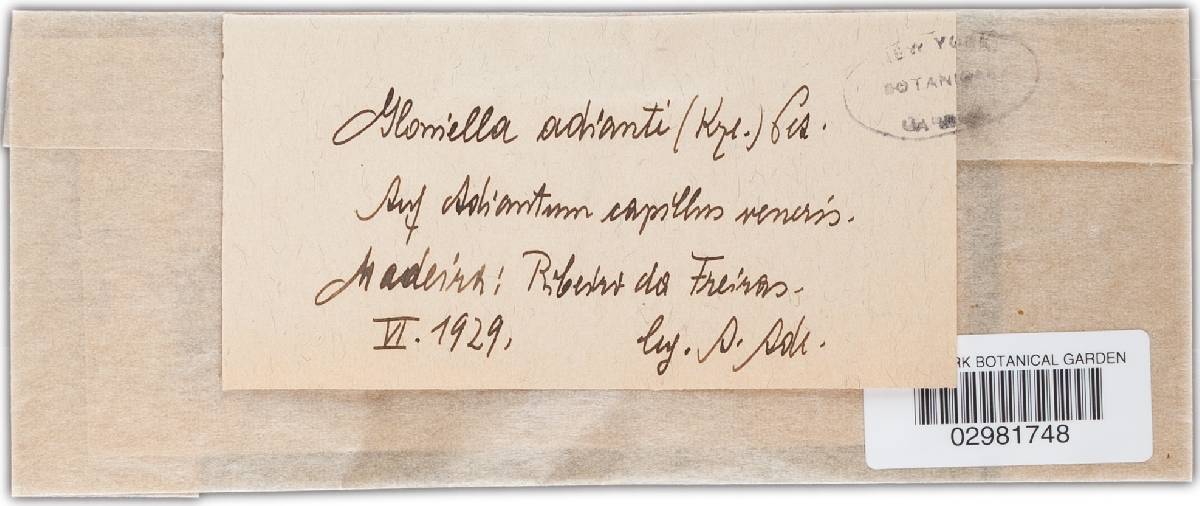 NEW YORK
BOTANICAL
GARDEN
Gloniella adianti (Kze.) Pet.
Auf Adiantum capillus veneris.
Madeira: Ribeiro da Freiras.
VI. 1929.
leg. A. Ade.
RK BOTANICAL GARDEN
02981748